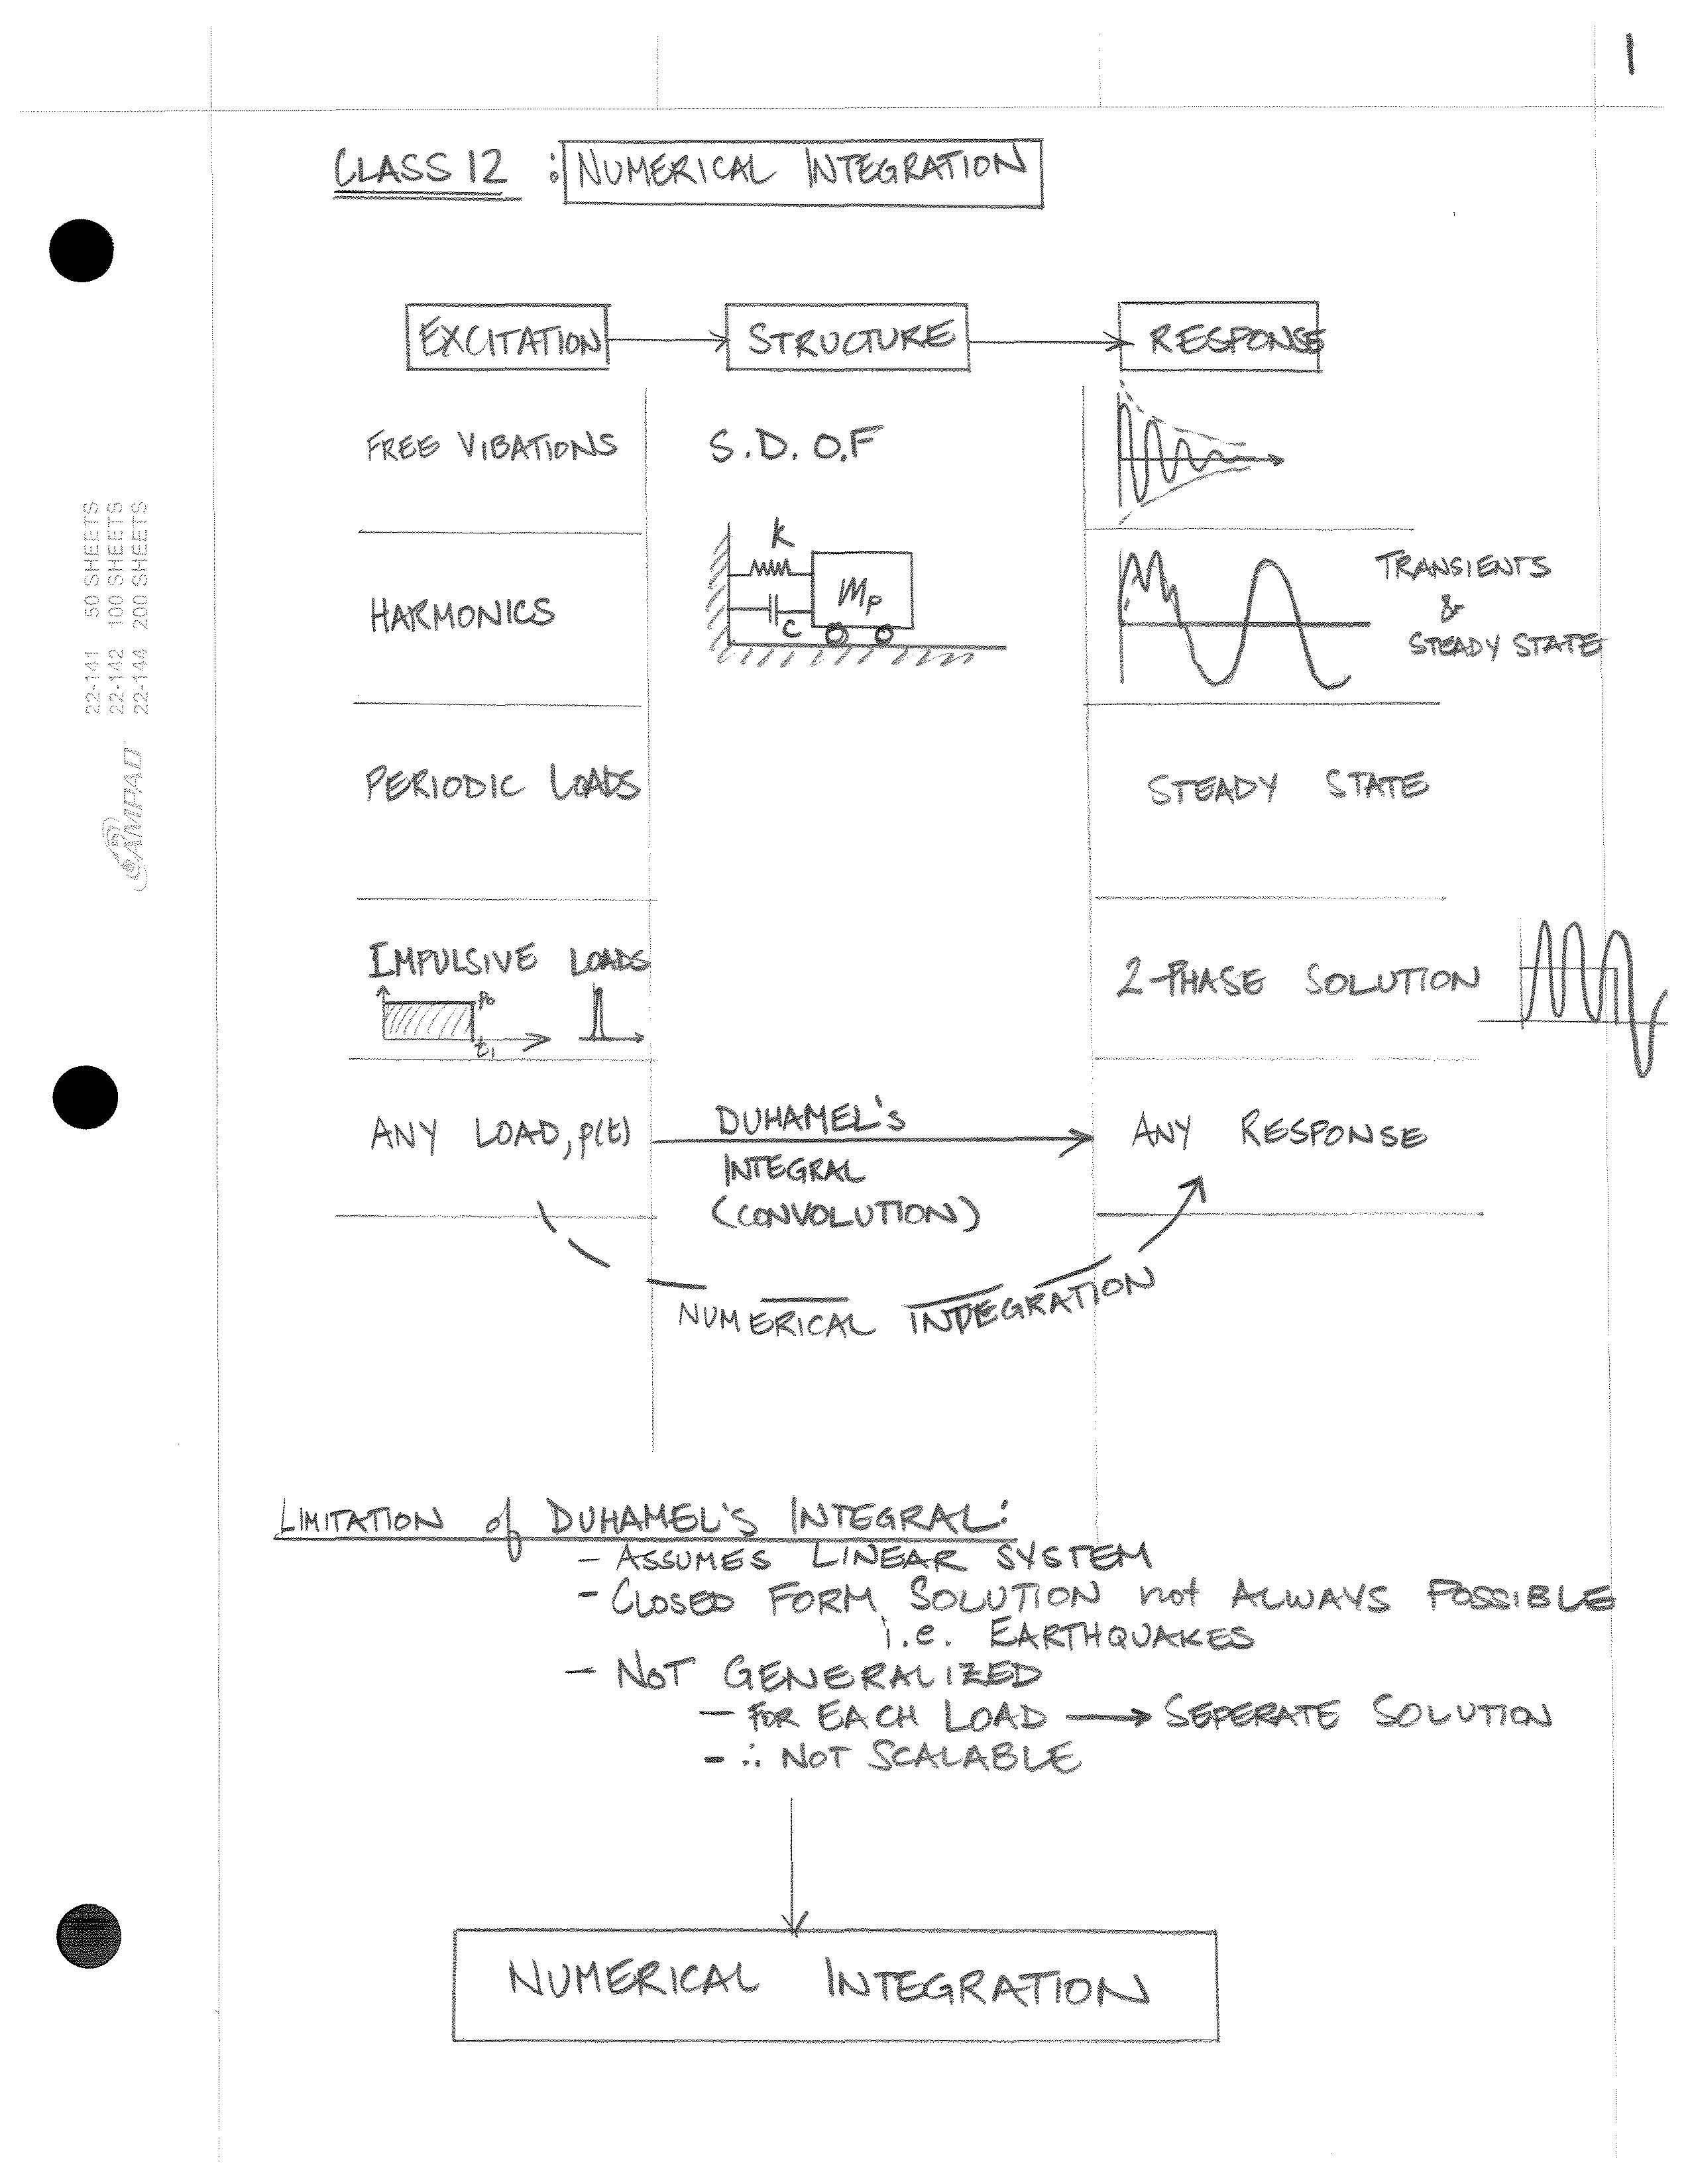 1
CLASS 12 : NUMERICAL INTEGRATION
EXCITATION STRUCTURE RESPONSE
FREE VIBATIONS S.D.O.F
HARMONICS
k
c
Mp
TRANSIENTS
&
STEADY STATE
PERIODIC LOADS STEADY STATE
IMPULSIVE LOADS
p₀
t₁
2-PHASE SOLUTION
ANY LOAD, p(t) DUHAMEL'S ANY RESPONSE
INTEGRAL
(CONVOLUTION)
NUMERICAL INTEGRATION
LIMITATION of DUHAMEL'S INTEGRAL:
- ASSUMES LINEAR SYSTEM
- CLOSED FORM SOLUTION not ALWAYS POSSIBLE
i.e. EARTHQUAKES
- NOT GENERALIZED
- FOR EACH LOAD → SEPERATE SOLUTION
- ∴ NOT SCALABLE
NUMERICAL INTEGRATION
22-141 50 SHEETS
22-142 100 SHEETS
22-144 200 SHEETS
AMPAD